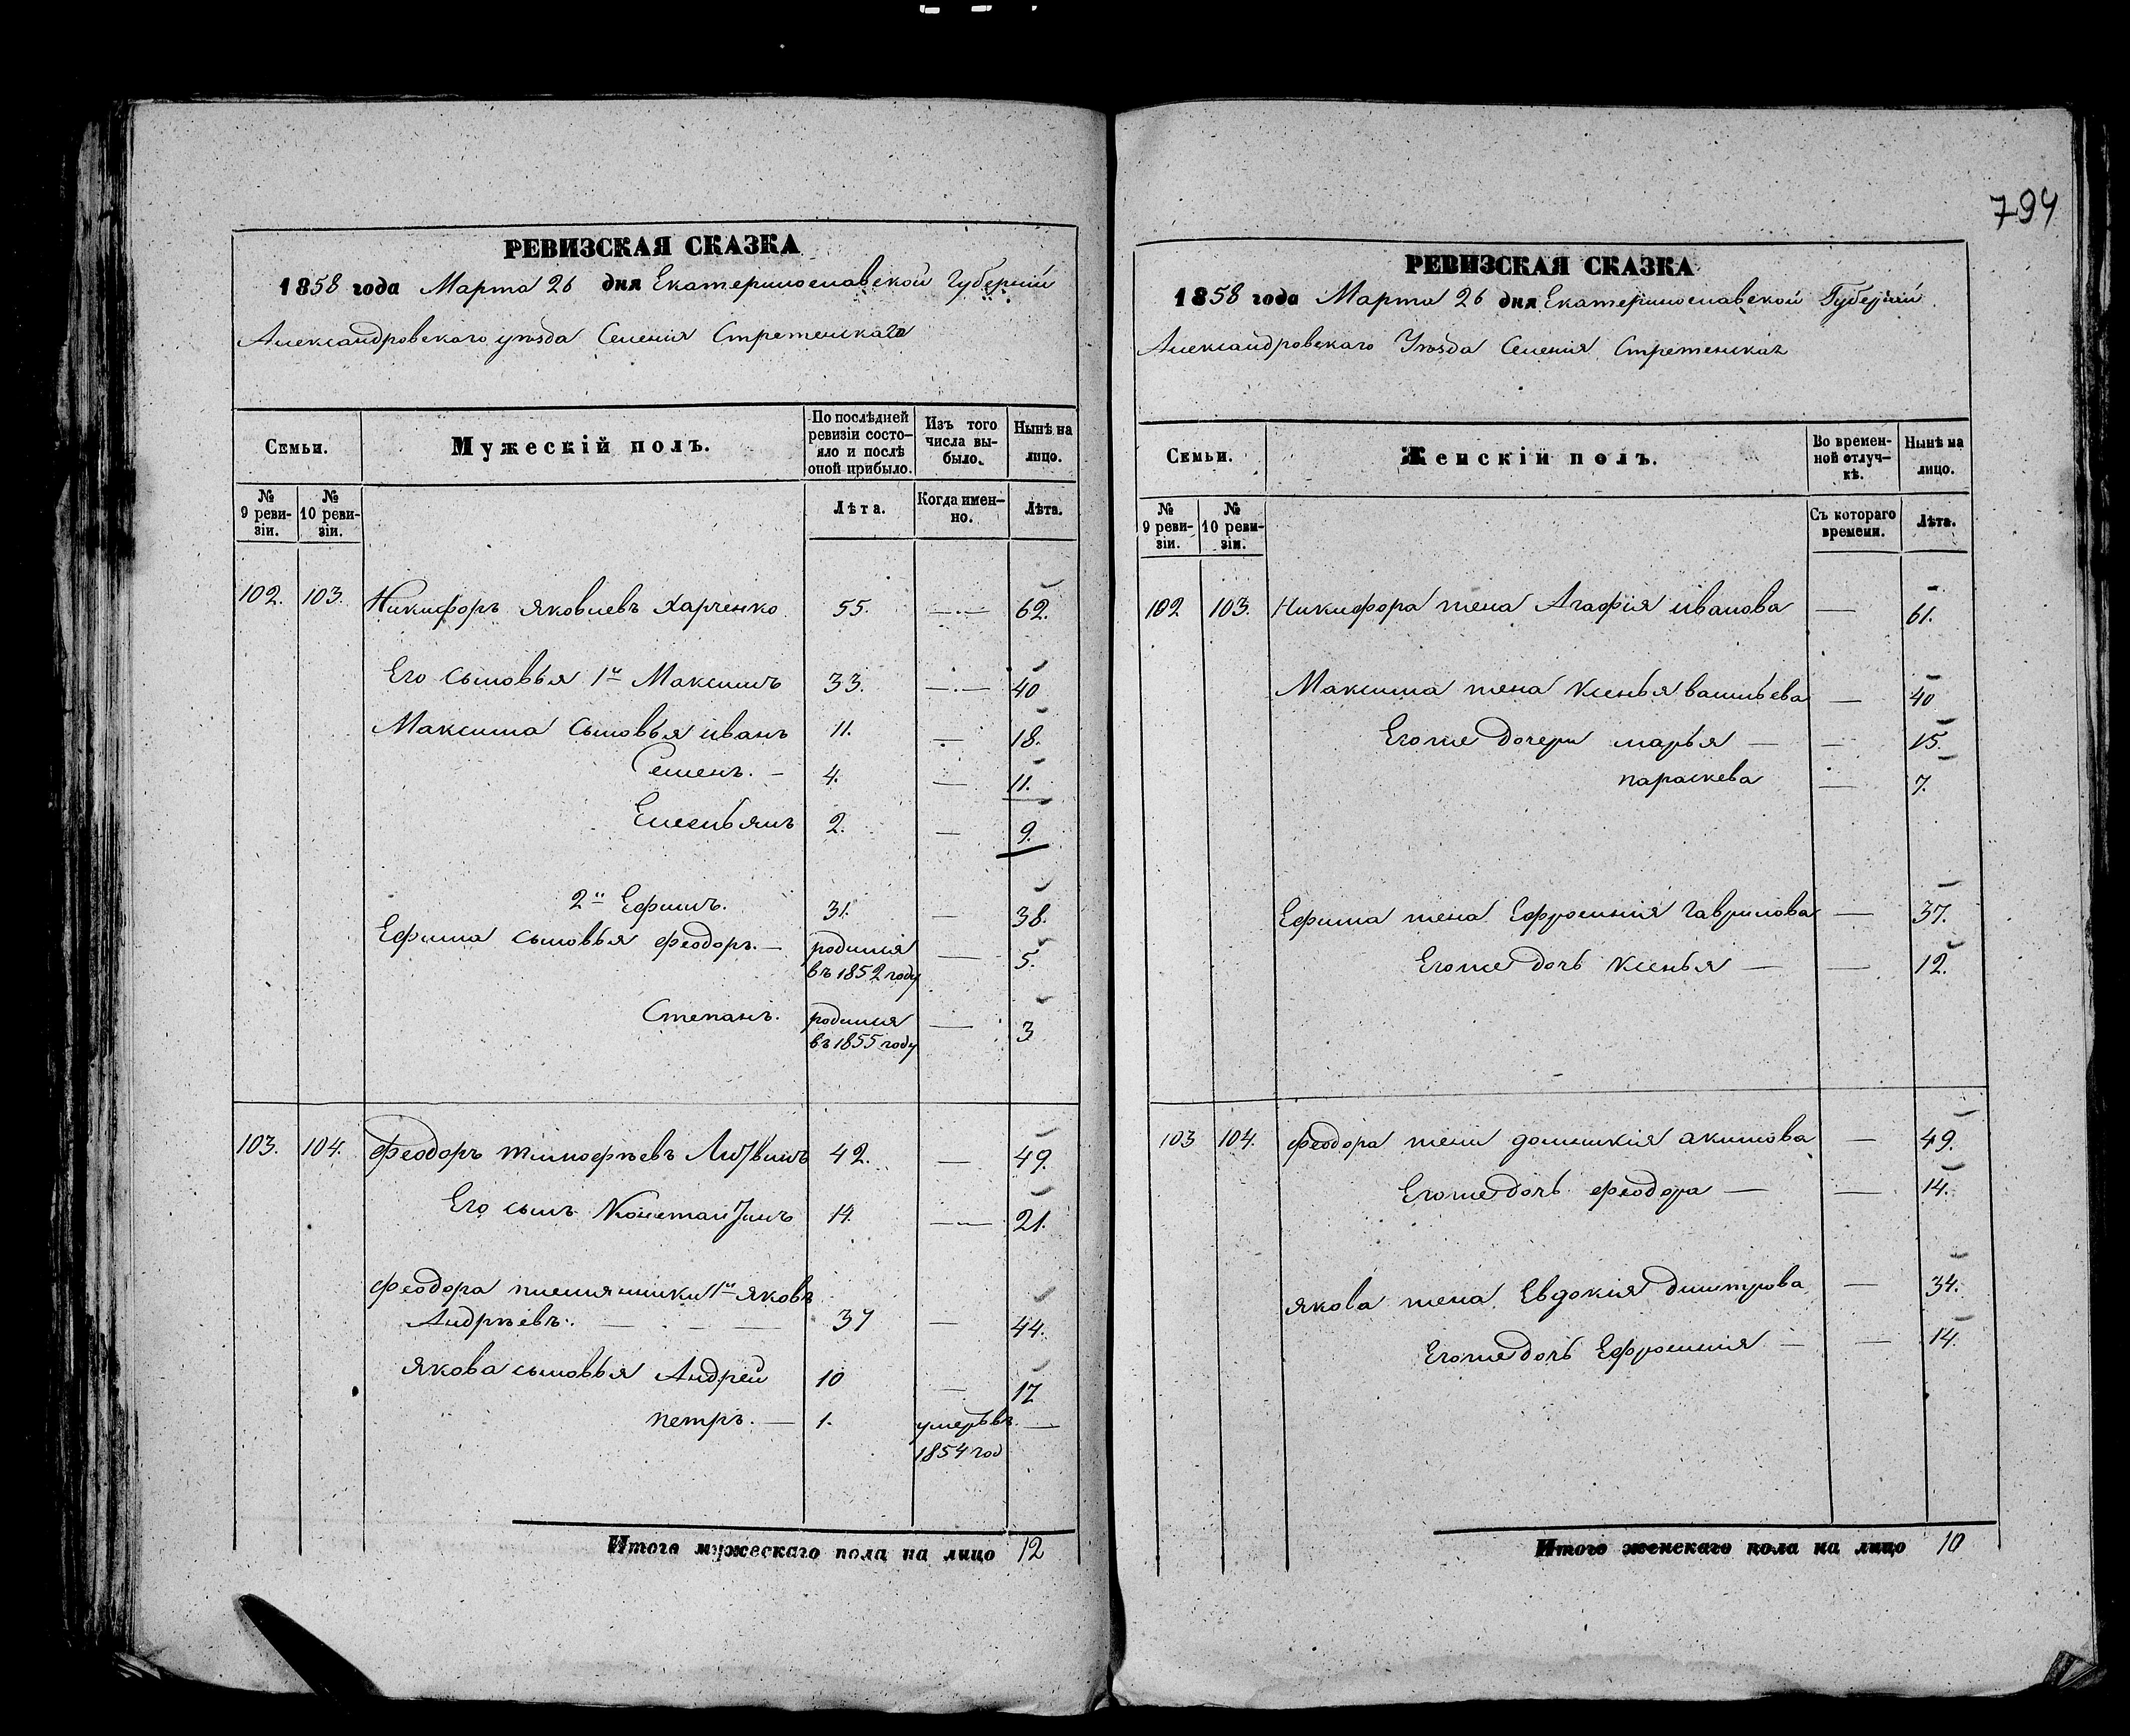 794
РЕВИЗСКАЯ СКАЗКА
1858 года Марта 26 дня Екатеринославской Губерніи
Александровскаго уѣзда Селенія Стретенскаго
Семьи.
Мужескій полъ.
По послѣдней ревизіи состо-
яло и послѣ оной прибыло.
Изъ того числа вы-
было.
Нынѣ на лицо.
№ 9 реви-
зіи.
№ 10 реви-
зіи.
Лѣта.
Когда имен-
но.
Лѣта.
102. 103. Никифоръ яковлевъ Харченко 55. — 62.
Его сыновья 1й Максимъ 33. — 40
Максима сыновья иванъ 11. — 18.
Семенъ. — 4. — 11.
Емельянъ 2. — 9.
2й Ефимъ. 31. — 38.
Ефима сыновья Феодоръ. — родился въ 1852 году — 5.
Степанъ. родился въ 1855 году — 3
103. 104. Феодоръ тимофѣевъ Литвинъ 42. — 49.
Его сынъ Константинъ 14. — 21.
Феодора племянники 1й яковъ
Андрѣевъ. — — — 37 — 44.
якова сыновья Андрей 10 — 17
петръ. — 1. умеръ въ 1854 год —
Итого мужескаго пола на лицо 12
РЕВИЗСКАЯ СКАЗКА
1858 года Марта 26 дня Екатеринославской Губерніи
Александровскаго Уѣзда Селенія Стретенскаг
Семьи.
Женскій полъ.
Во времен-
ной отлуч-
кѣ.
Нынѣ на лицо.
№ 9 реви-
зіи.
№ 10 реви-
зіи.
Съ котораго времени.
Лѣта.
102 103. Никифора жена Агафія иванова — 61.
Максима жена Ксенья васильева — 40
Егоже дочери марья — — 15.
параскева — 7.
Ефима жена Ефросинія гаврилова — 37.
Егоже дочь Ксенья — — 12.
103 104. Феодора жена домникія акимова — 49.
Егоже дочь феодора — — 14.
якова жена Евдокія дмитрова — 34.
Егоже дочь Ефросинія — — 14.
Итого женскаго пола на лицо 10